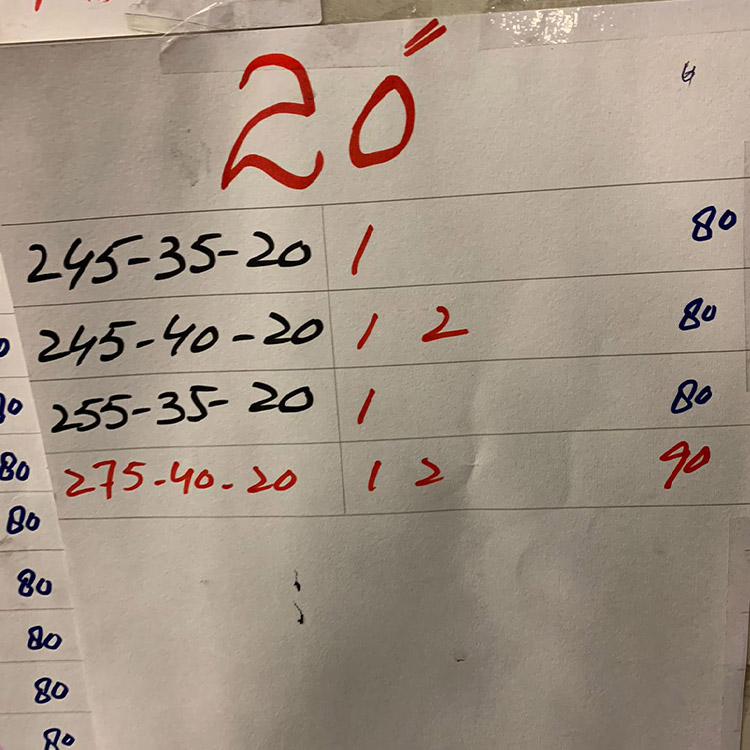 20"
245-35-20 1 80
245-40-20 1 2 80
255-35-20 1 80
275-40-20 1 2 90
80
80
80
80
80
80